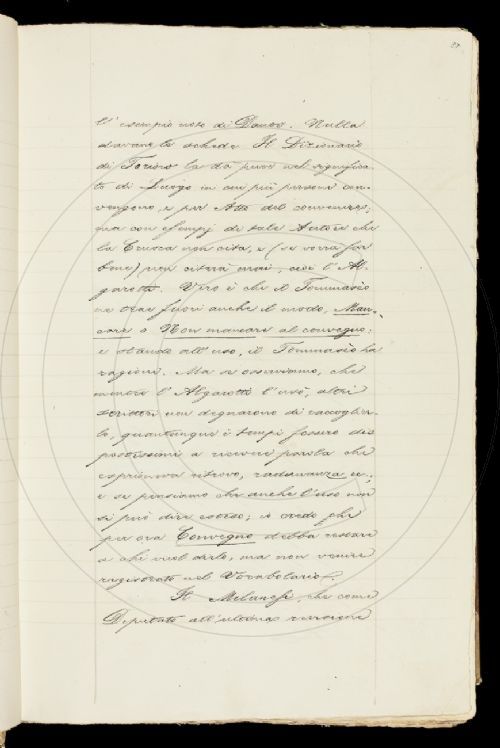 27
l'esempio noto di Dante. Nulla
avanti le schede. Il Dizionario
di Torino la dà pure nel significa-
to di Luogo in cui più persone con-
vengono, e per Atto del convenire;
ma con esempj di tale Autore che
la Crusca non cita, e (se vorrà far
bene) non citerà mai, cioè l'Al-
garotti. Vero è che il Tommaseo
ne trae fuori anche il modo, Man-
care o Non mancare al convegno;
e stando all'uso, il Tommasèo ha
ragione. Ma se osserviamo, che
mentre l'Algarotti l'usò, altri
scrittori non degnarono di raccoglier-
lo, quantunque i tempi fossero dis
postissimi a ricevere parola che
esprimeva ritrovo, radunanza ec.;
e se pensiamo che anche l'uso non
si può dire esteso; io credo che
per ora Convegno debba restare
a chi vuol dirlo, ma non venire
registrato nel Vocabolario.
Il Milanesi, che come
Deputato all'ultima revisione